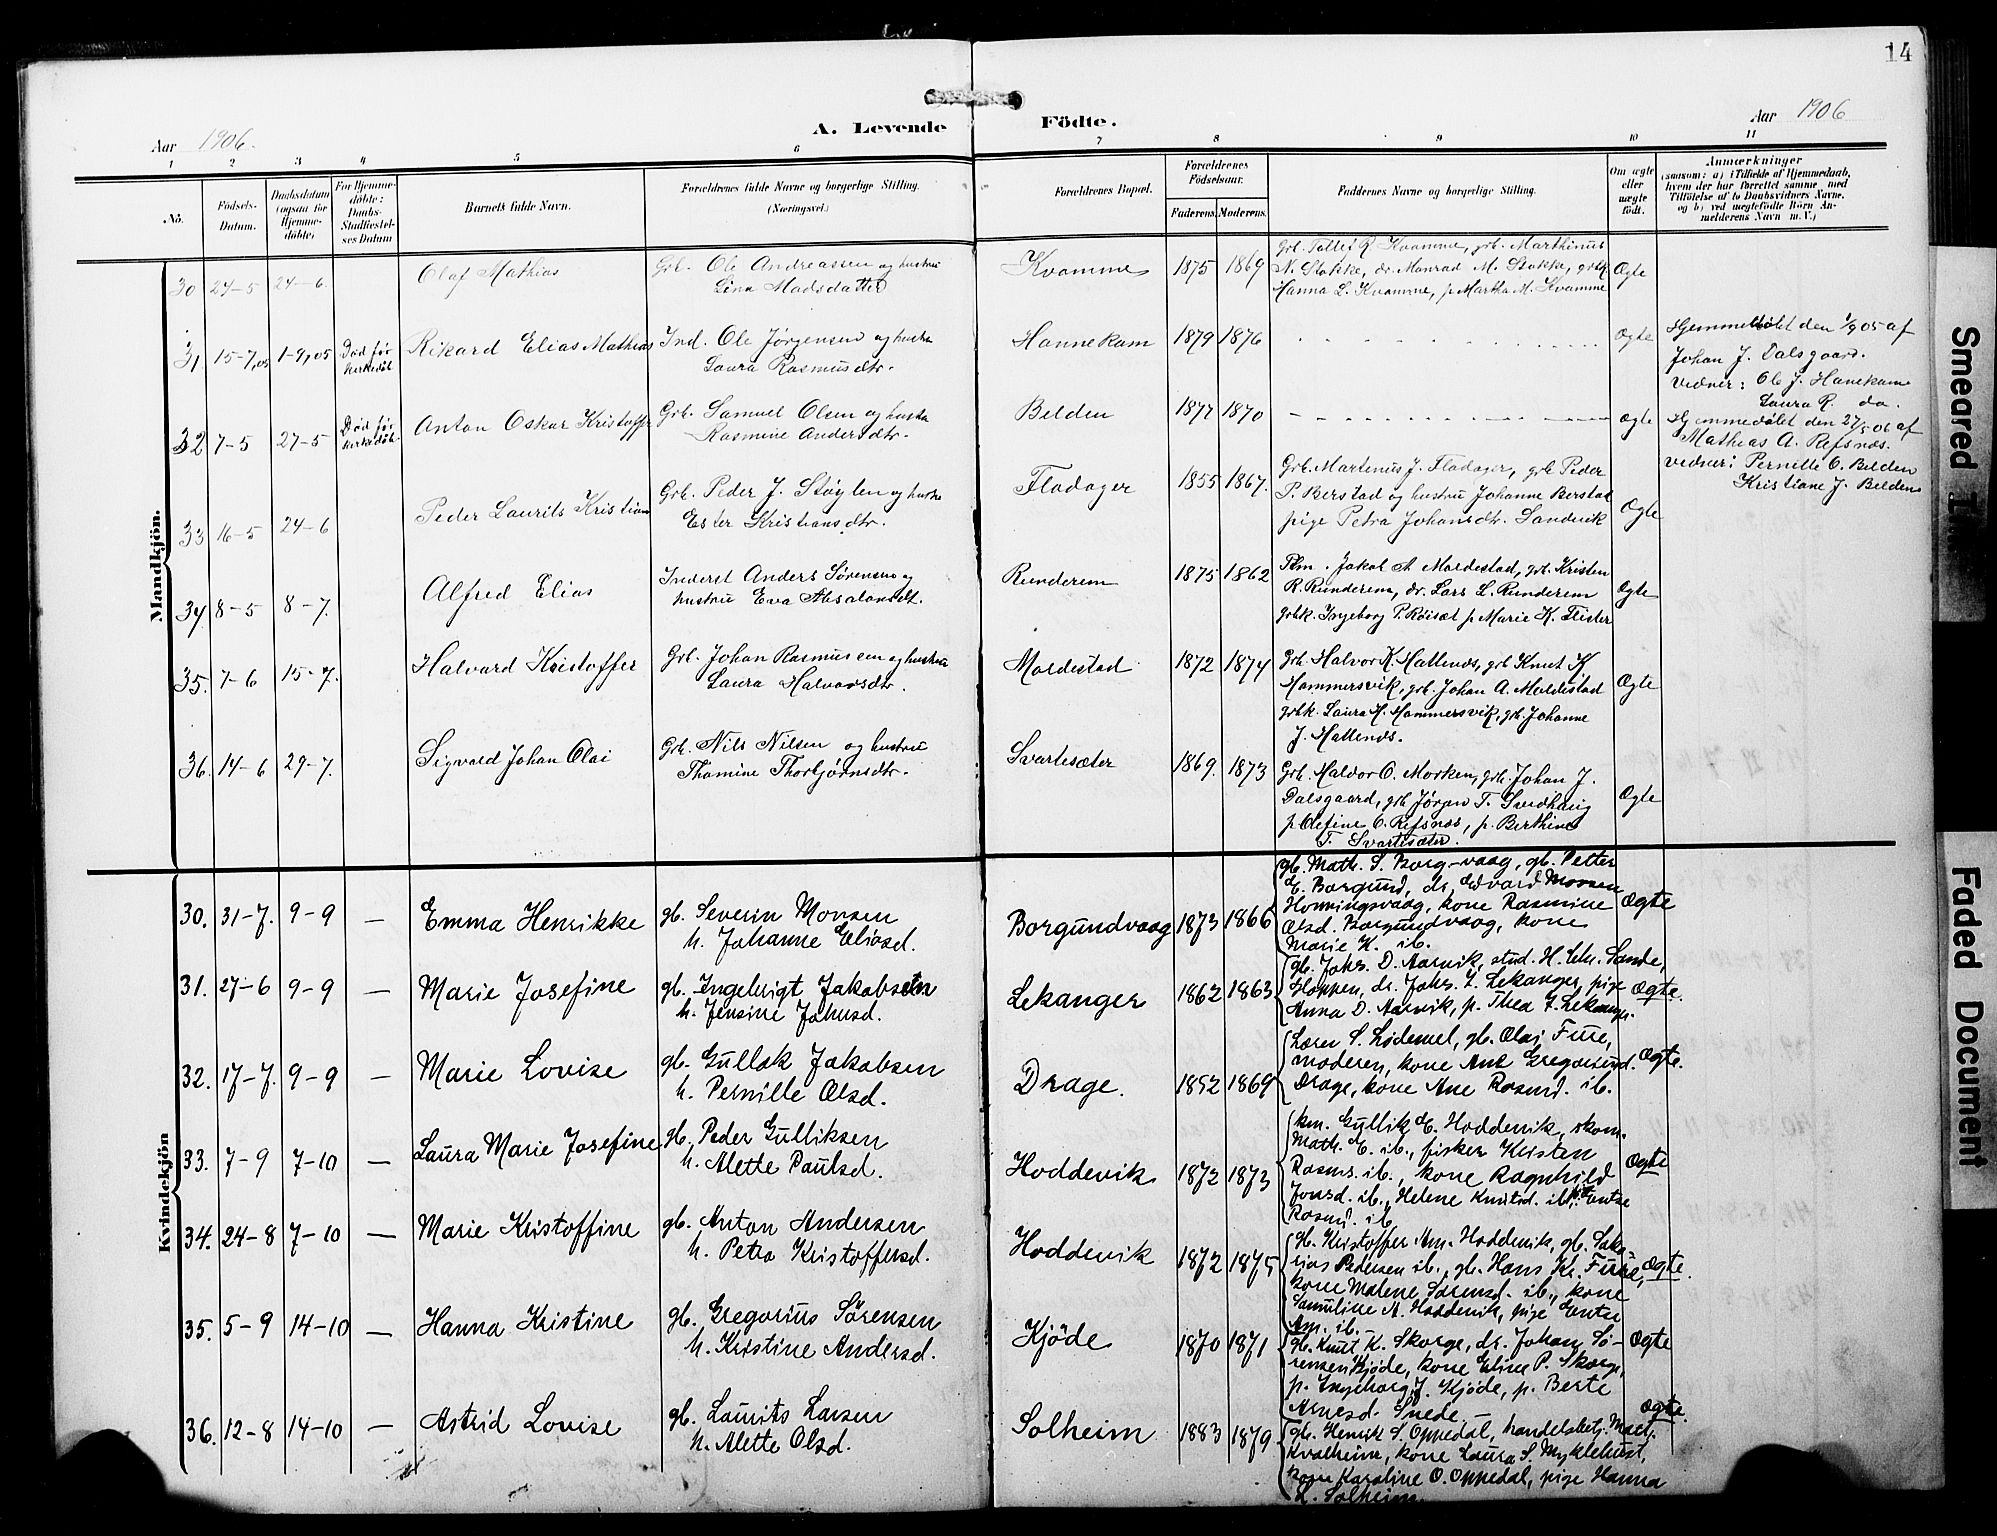 14
Aar 1906.
A. Levende
Födte.
Aar 1906
1 2 3 4 5 6 7 8 9 10 11
No.
Födsels-
Datum.
Daabsdatum
(ogsaa for
Hjemme-
döbte)
For Hjemme-
döbte:
Daabs-
Stadfæstel-
ses Datum
Barnets fulde Navn.
Forældrenes fulde Navne og borgerlige Stilling.
(Næringsvei.)
Forældrenes Bopæl.
Forældrenes
Födselsaar.
Faderens. Moderens.
Faddernes Navne og borgerlige Stilling.
Om ægte
eller
uægte
födt.
Anmærkninger
(saasom: a) i Tilfælde af Hjemmedaab,
hvem der har forrettet samme med
Tilföielse af to Daabsvidners Navne,
og b) ved uægtefödte Börn An-
melderens Navn m. V.)
Mandkjön.
30 24-5 24-6. Olaf Mathias
Grb. Ole Andreassen og hustru
Lina Madsdatter
Kvamme 1875 1869
Grb. Tollef R. Kvamme, grb. Marthinus
N. Stokke, dr. Monrad M. Stokke, grbk
Hanna L. Kvamme, p Martha M. Kvamme
Ægte
31. 15-7,05 1-9,05 Død før
kirkedåb
Rikard Elias Mathias
Ind. Ole Jørgensen og hustru
Laura Rasmusdtr.
Hannekam 1879 1876
Ægte
Hjemmedøbt den 1/9 05 af
Johan J. Dalsgaard.
Vidner: Ole J. Hanekam
Laura R. do.
32 7-5 27-5 Død før
kirkedåb.
Anton Oskar Kristoffer
Grb. Samuel Olsen og hustru
Rasmine Andersdtr.
Belden 1877 1870
Ægte
Hjemmedøbt den 27/5 06 af
Mathias A. Refsnæs.
Vidner: Pernille O. Belden
Kristiane J. Belden
33 16-5 24-6 Peder Laurits Kristian
Grb. Peder J. Støylen og hustru
Ester Kristiansdtr.
Fladager 1855 1867.
Grb. Martenus J. Fladager, grb Peder
P. Berstad og hustru Johanne Berstad
pige Petra Johansdtr. Sandvik
Ægte
34. 8-5 8-7. Alfred Elias
Inderst Anders Sørensen og
hustru Eva Absalonsdt.
Runderem 1875 1862
Pkm. Jakob A Moldestad, grb. Kristen
R. Runderem, dr. Lars L. Runderem
grbk. Ingeborg P. Røisæt p Marie K. Flister
Ægte
35. 7-6 15-7. Halvard Kristoffer
Grb. Johan Rasmussen og hustru
Laura Halvorsdtr.
Moldestad 1872 1874
Grb. Halvor K. Hallenæs, grb Knut K
Hammersvik, grb. Johan A. Moldestad
grbk. Laura H. Hammersvik, grb. Johanne
J. Hallenæs.
Ægte
36. 14-6 29-7. Sigvald Johan Olai
Grb. Nils Nilsen og hustru
Thomine Thorbjørnsdtr.
Svartesæter 1869. 1873
Grb. Haldor O. Morken, grb. Johan J.
Dalsgaard, grb Jørgen T.
p Olefine O. Refsnæs, p. Berthine
T. Svartesæter.
Ægte
Kvindekjön
30. 31-7. 9-9 — Emma Henrikke
gb. Severin Monsen
h. Johanne Eliasd.
Borgundvaag 1873 1866
gb. Math. S. Borg-vaag, gb. Petter
E. Borgund, dr. Edvard Monsen
Honningsvaag, kone Rasmine
Olsd. Borgundvaag, kone
Marie K. ib.
Ægte
31. 27-6 9-9 — Marie Josefine
gb. Ingebrigt Jakobsen
h. Jensine Johnsd.
Lekanger 1862 1863
gb. Johs. D. Aarvik, stud. H. Chr. Sande,
Gloppen, dr. Johs. I. Lekanger, pige
Anna D. Aarvik, p. Thea I. Lekanger.
Ægte.
32. 17-7. 9-9 — Marie Lovise
gb. Gullak Jakobsen
h. Pernille Olsd.
Drage. 1852 1869
Lærer S. Lødemel, gb. Olai Fure,
moderen, kone Ane Gregoriusd.
Drage, kone Ane Rasmd. ib.
Ægte.
33. 7-9 7-10 — Laura Marie Josefine
gb. Peder Gulliksen
h. Alette Paulsd.
Hoddevik 1872 1873
km. Gullik E. Hoddevik, skom.
Math. E. ib., fisker Kristen
Rasms. ib., kone Ragnhild
Jonsd. ib., Helene Knutsd. ib.,
Rasmd. ib.
Ægte
34. 24-8 7-10 — Marie Kristoffine
gb. Anton Andersen
h. Petra Kristoffersd.
Hoddevik 1872 1875
gb. Kristoffer Am. Hoddevik, gb. Saka-
rias Pedersen ib., gb. Hans Kr. Fure,
kone Malene Sørensd. ib., kone
Samuline A. Hoddevik, pige Gurtse
Am. ib.
Ægte.
35. 5-9 14-10 — Hanna Kristine
gb. Gregorius Sörensen
h. Kristine Andersd.
Kjöde 1870 1871
gb. Knut K. Skorge, dr. Johan Sö-
rensen Kjöde, kone Eline P. Skorge,
p. Ingeborg J. Kjöde, p. Berte
Arnesd. Snede
Ægte
36. 12-8 14-10 — Astrid Lovise
gb. Laurits Larsen
h. Alette Olsd.
Solheim 1883 1879
gb. Henrik S. Oppedal, handelsbetj. Mart.
Kvalheim, kone Laura S. Myklebust,
kone Karoline O. Oppedal, pige Hanna
L. Solheim.
Ægte.
Smeared
Faded Document